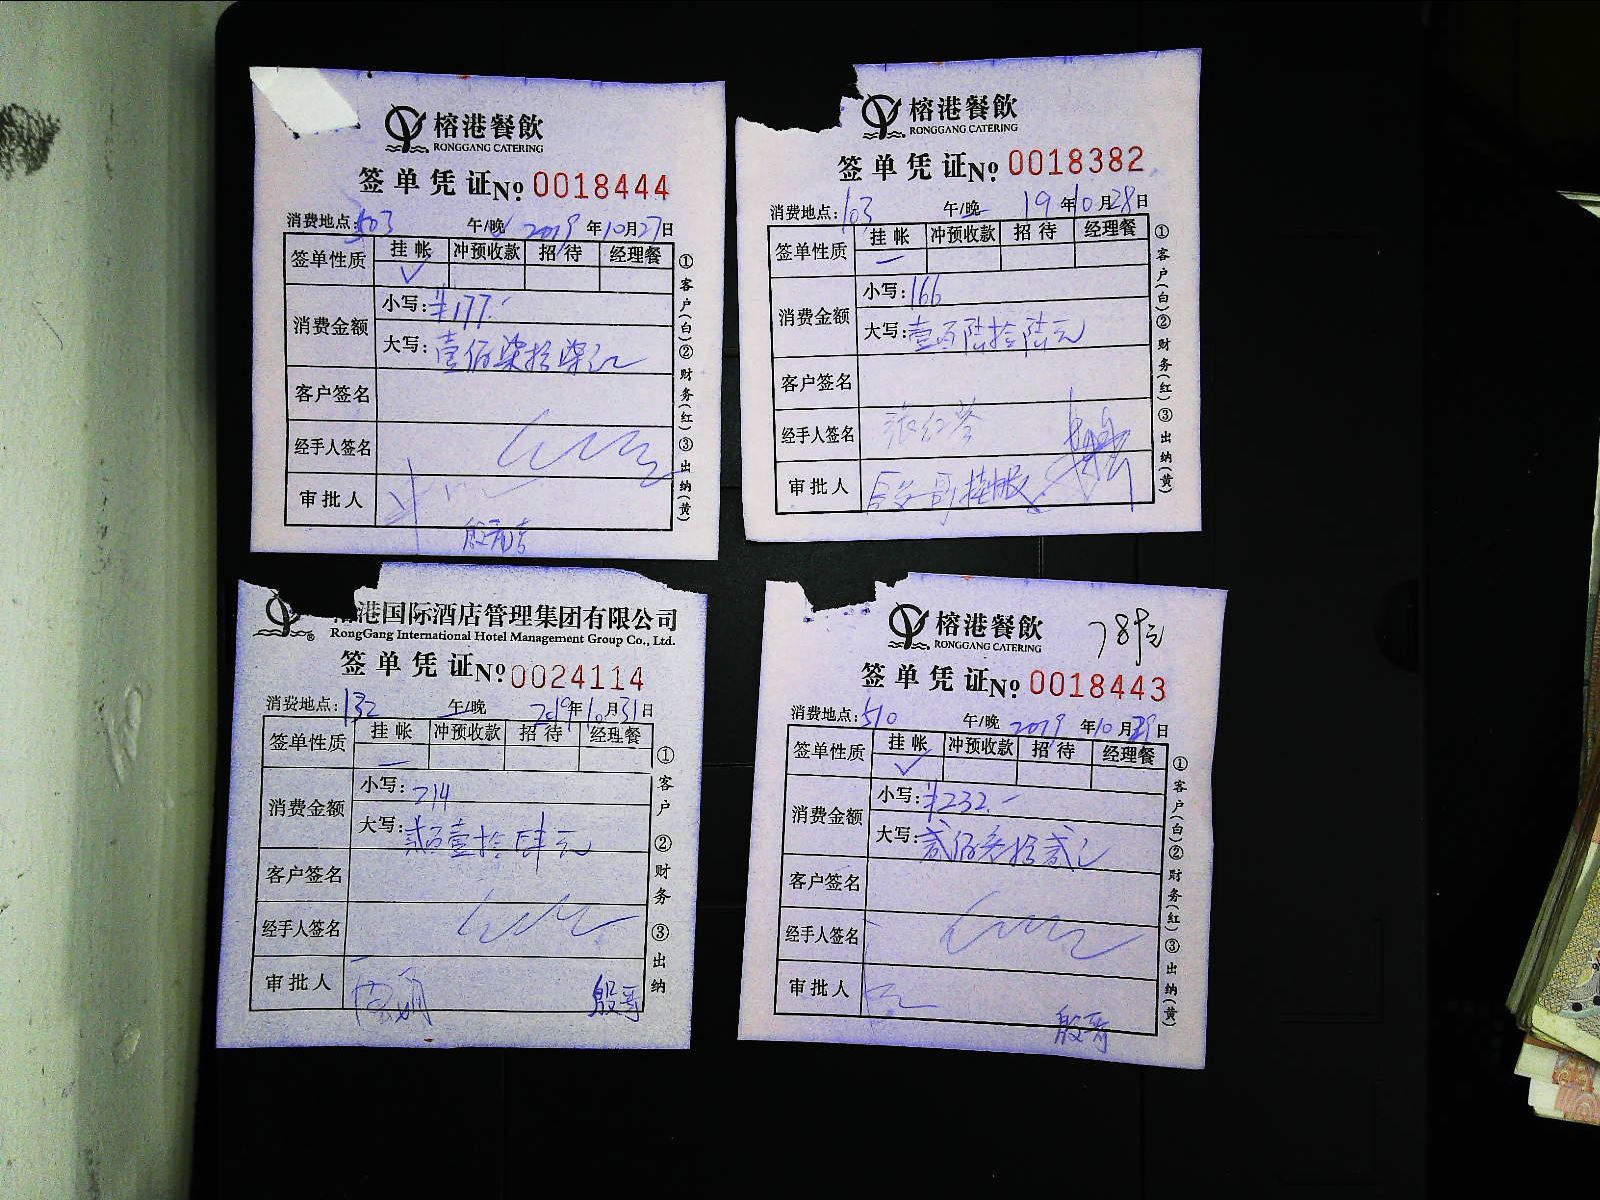 榕港餐飲
RONGGANG CATERING
签单凭证№ 0018444
消费地点: 503 午/晚 2019年10月27日
签单性质 挂帐 冲预收款 招待 经理餐
✓
消费金额 小写: ¥177.-
大写: 壹佰柒拾柒元
客户签名
经手人签名
审批人
殷哥
①客户(白)②财务(红)③出纳(黄)
榕港餐飲
RONGGANG CATERING
签单凭证№ 0018382
消费地点: 103 午/晚 19年10月28日
签单性质 挂帐 冲预收款 招待 经理餐
消费金额 小写: 166
大写: 壹百陆拾陆元
客户签名
经手人签名 张红琴
审批人 殷哥挂帐
①客户(白)②财务(红)③出纳(黄)
港国际酒店管理集团有限公司
RongGang International Hotel Management Group Co., Ltd.
签单凭证№ 0024114
消费地点: 132 午/晚 2019年10月31日
签单性质 挂帐 冲预收款 招待 经理餐
消费金额 小写: 214
大写: 贰百壹拾肆元
客户签名
经手人签名
审批人 殷哥
①客户 ②财务 ③出纳
榕港餐飲
RONGGANG CATERING
789元
签单凭证№ 0018443
消费地点: 510 午/晚 2019年10月29日
签单性质 挂帐 冲预收款 招待 经理餐
✓
消费金额 小写: ¥232.-
大写: 贰佰叁拾贰元
客户签名
经手人签名
审批人
殷哥
①客户(白)②财务(红)③出纳(黄)